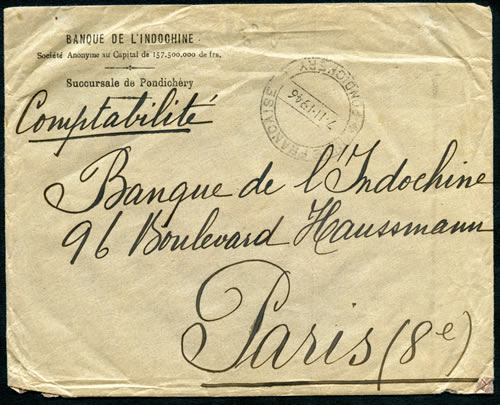 BANQUE DE L'INDOCHINE
Société Anonyme au Capital de 157.500.000 de frs.
Succursale de Pondichéry
PONDICHERY
7-11-1946
FRANÇAISE
Comptabilité
Banque de l'Indochine
96 Boulevard Haussmann
Paris (8e)